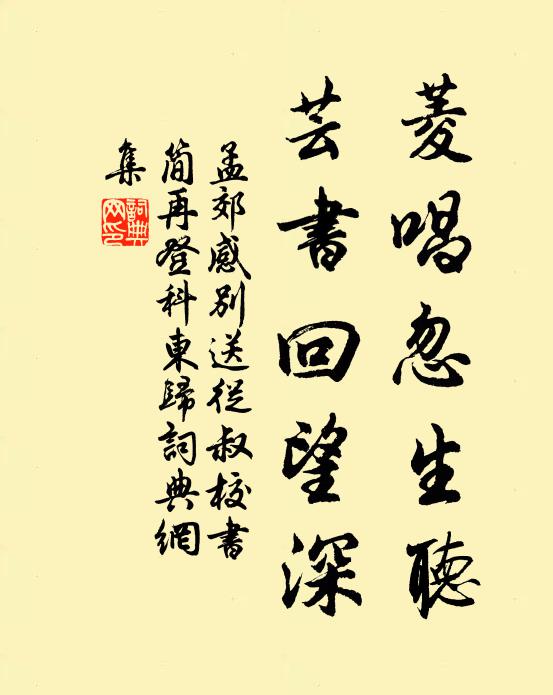 菱唱忽生聽
芸書回望深
孟郊感別送從叔校書
簡再登科東歸詞典網
集
詞典
网印